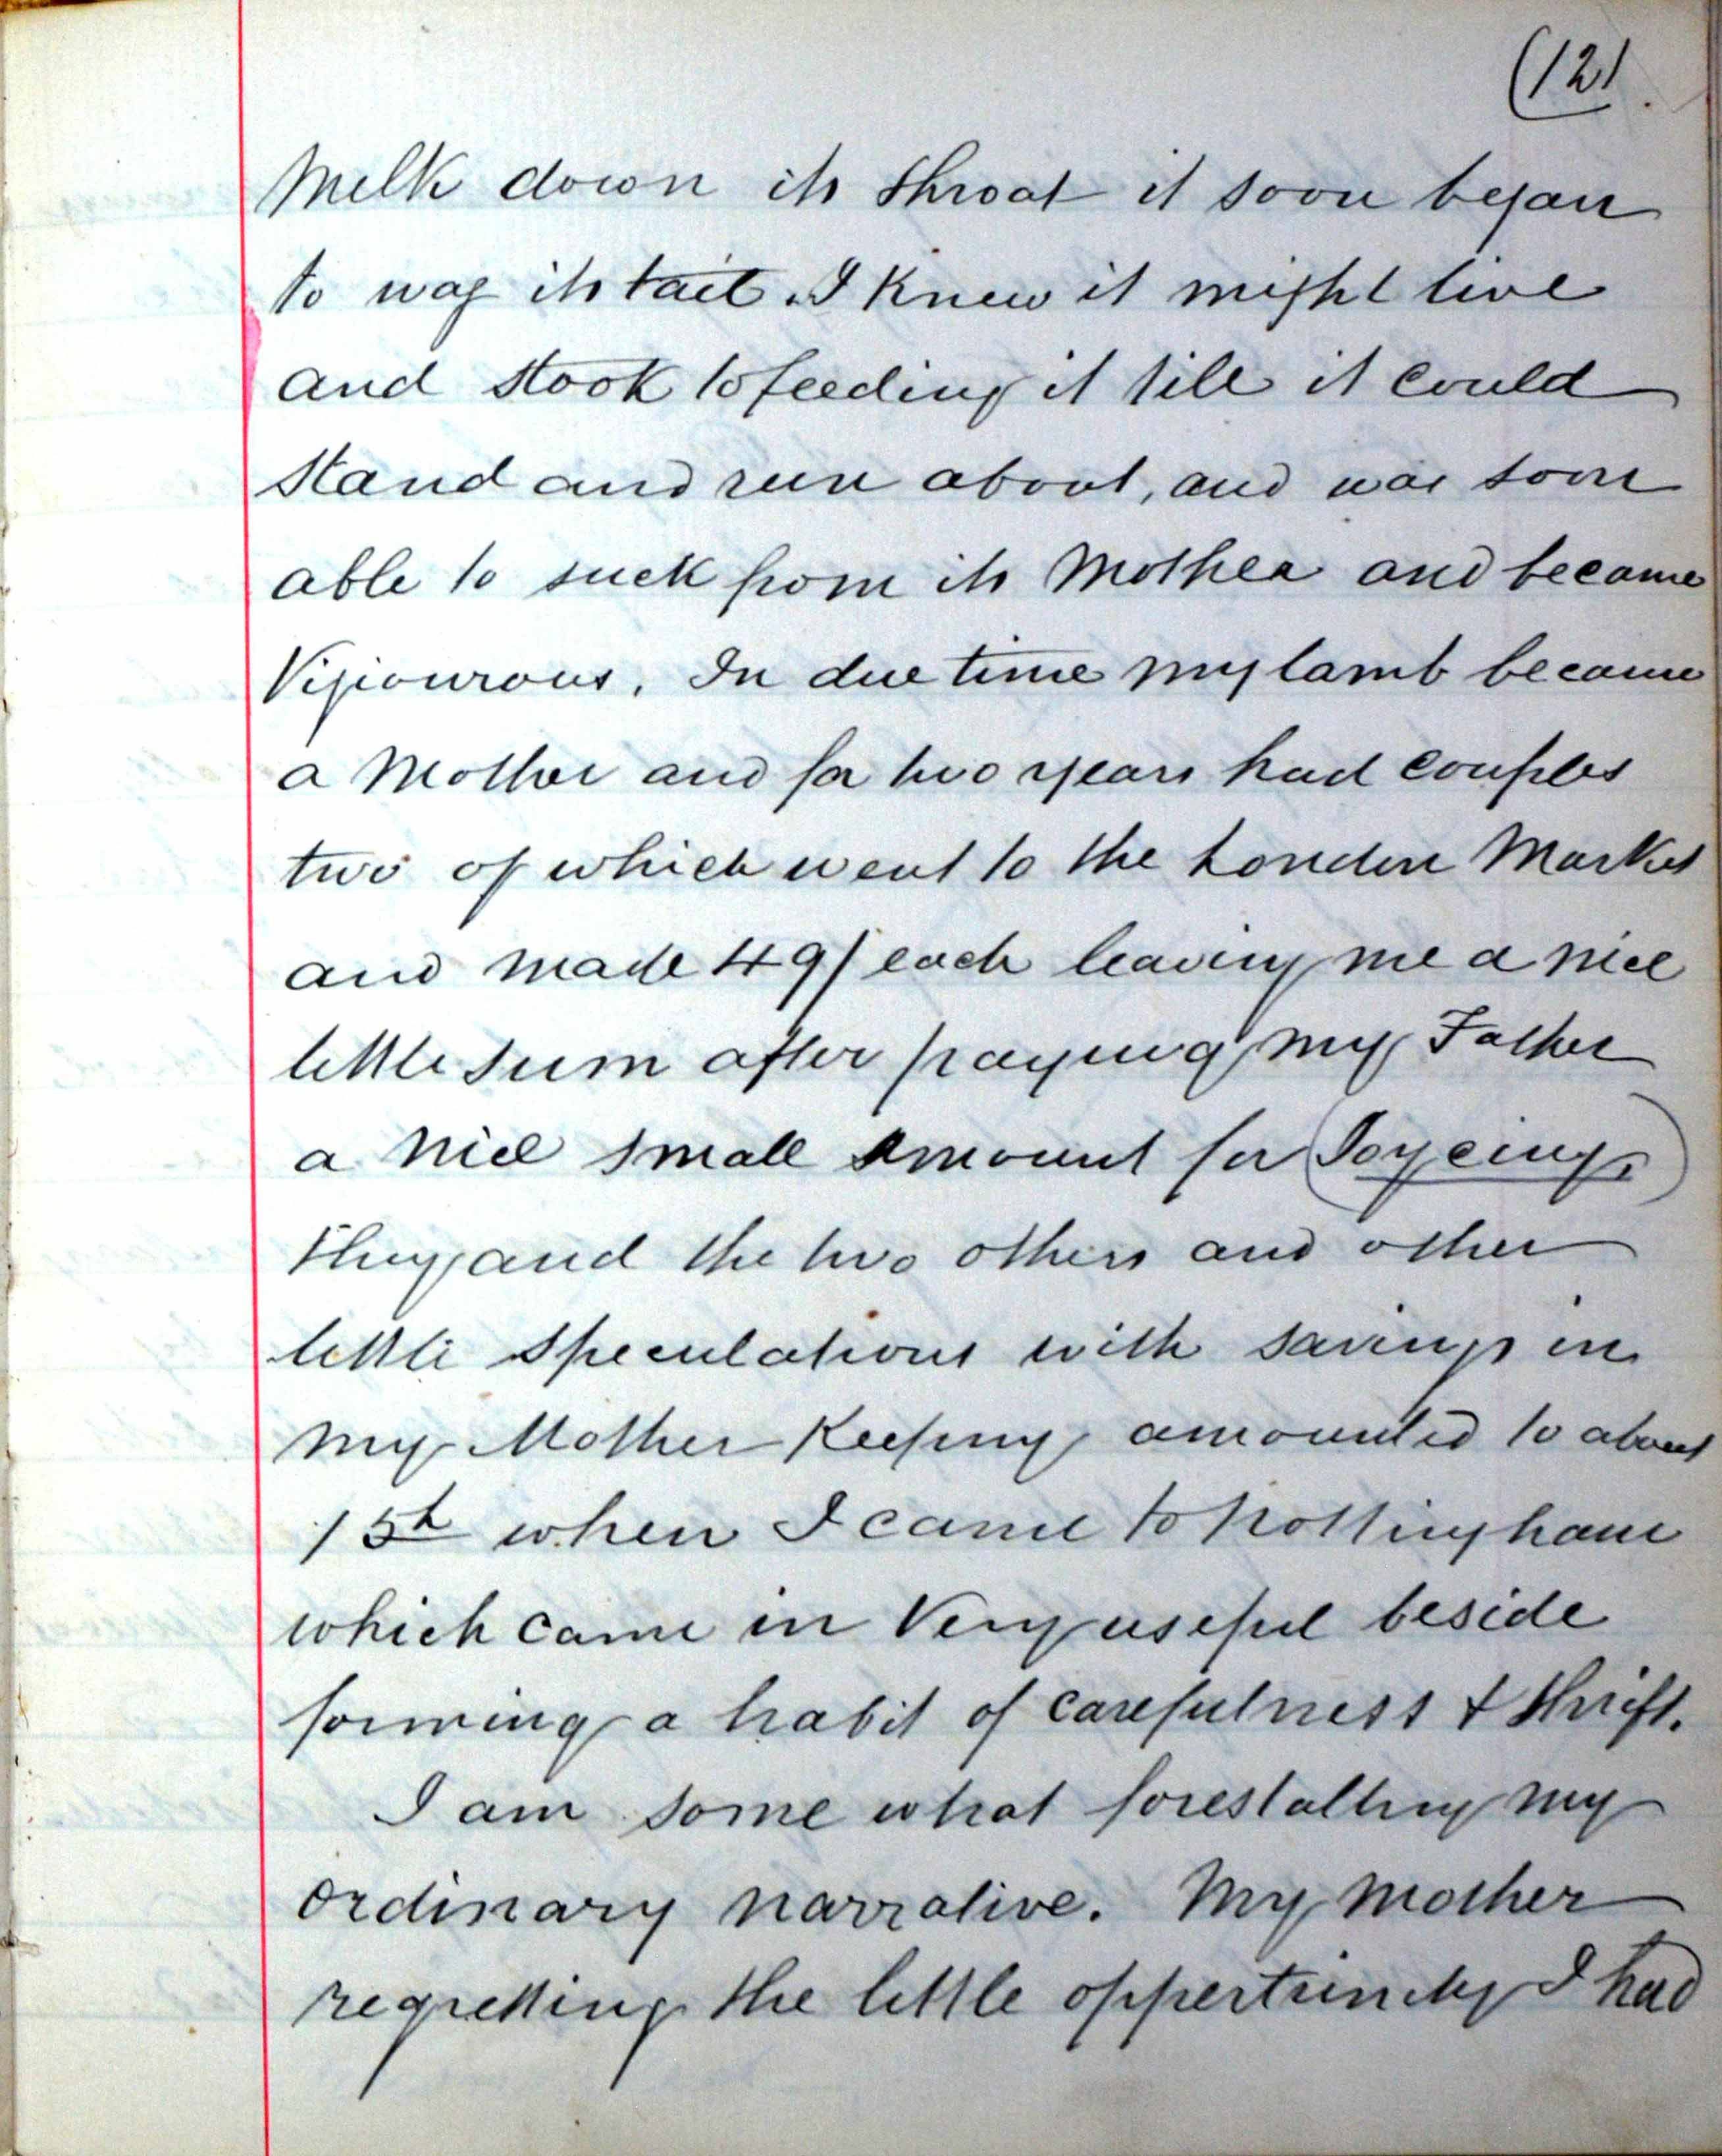 (12)
Milk down its throat it soon began
to wag its tail. I knew it might live
and stook to feeding it till it could
stand and run about, and was soon
able to suck from its Mother and became
Vigiourous. In due time my lamb became
a Mother and for two years had couples
two of which went to the London Market
and made 49/ each leaving me a nice
little sum after paying my Father
a nice small amount for (Joyceing)
they and the two others and other
little speculations with savings in
my Mother Keeping amounted to about
15£ when I came to Nottingham
which came in Very useful beside
forming a habit of carefulness & thrift.
I am some what forestalling my
ordinary narrative. My Mother
regretting the little oppertunity I had